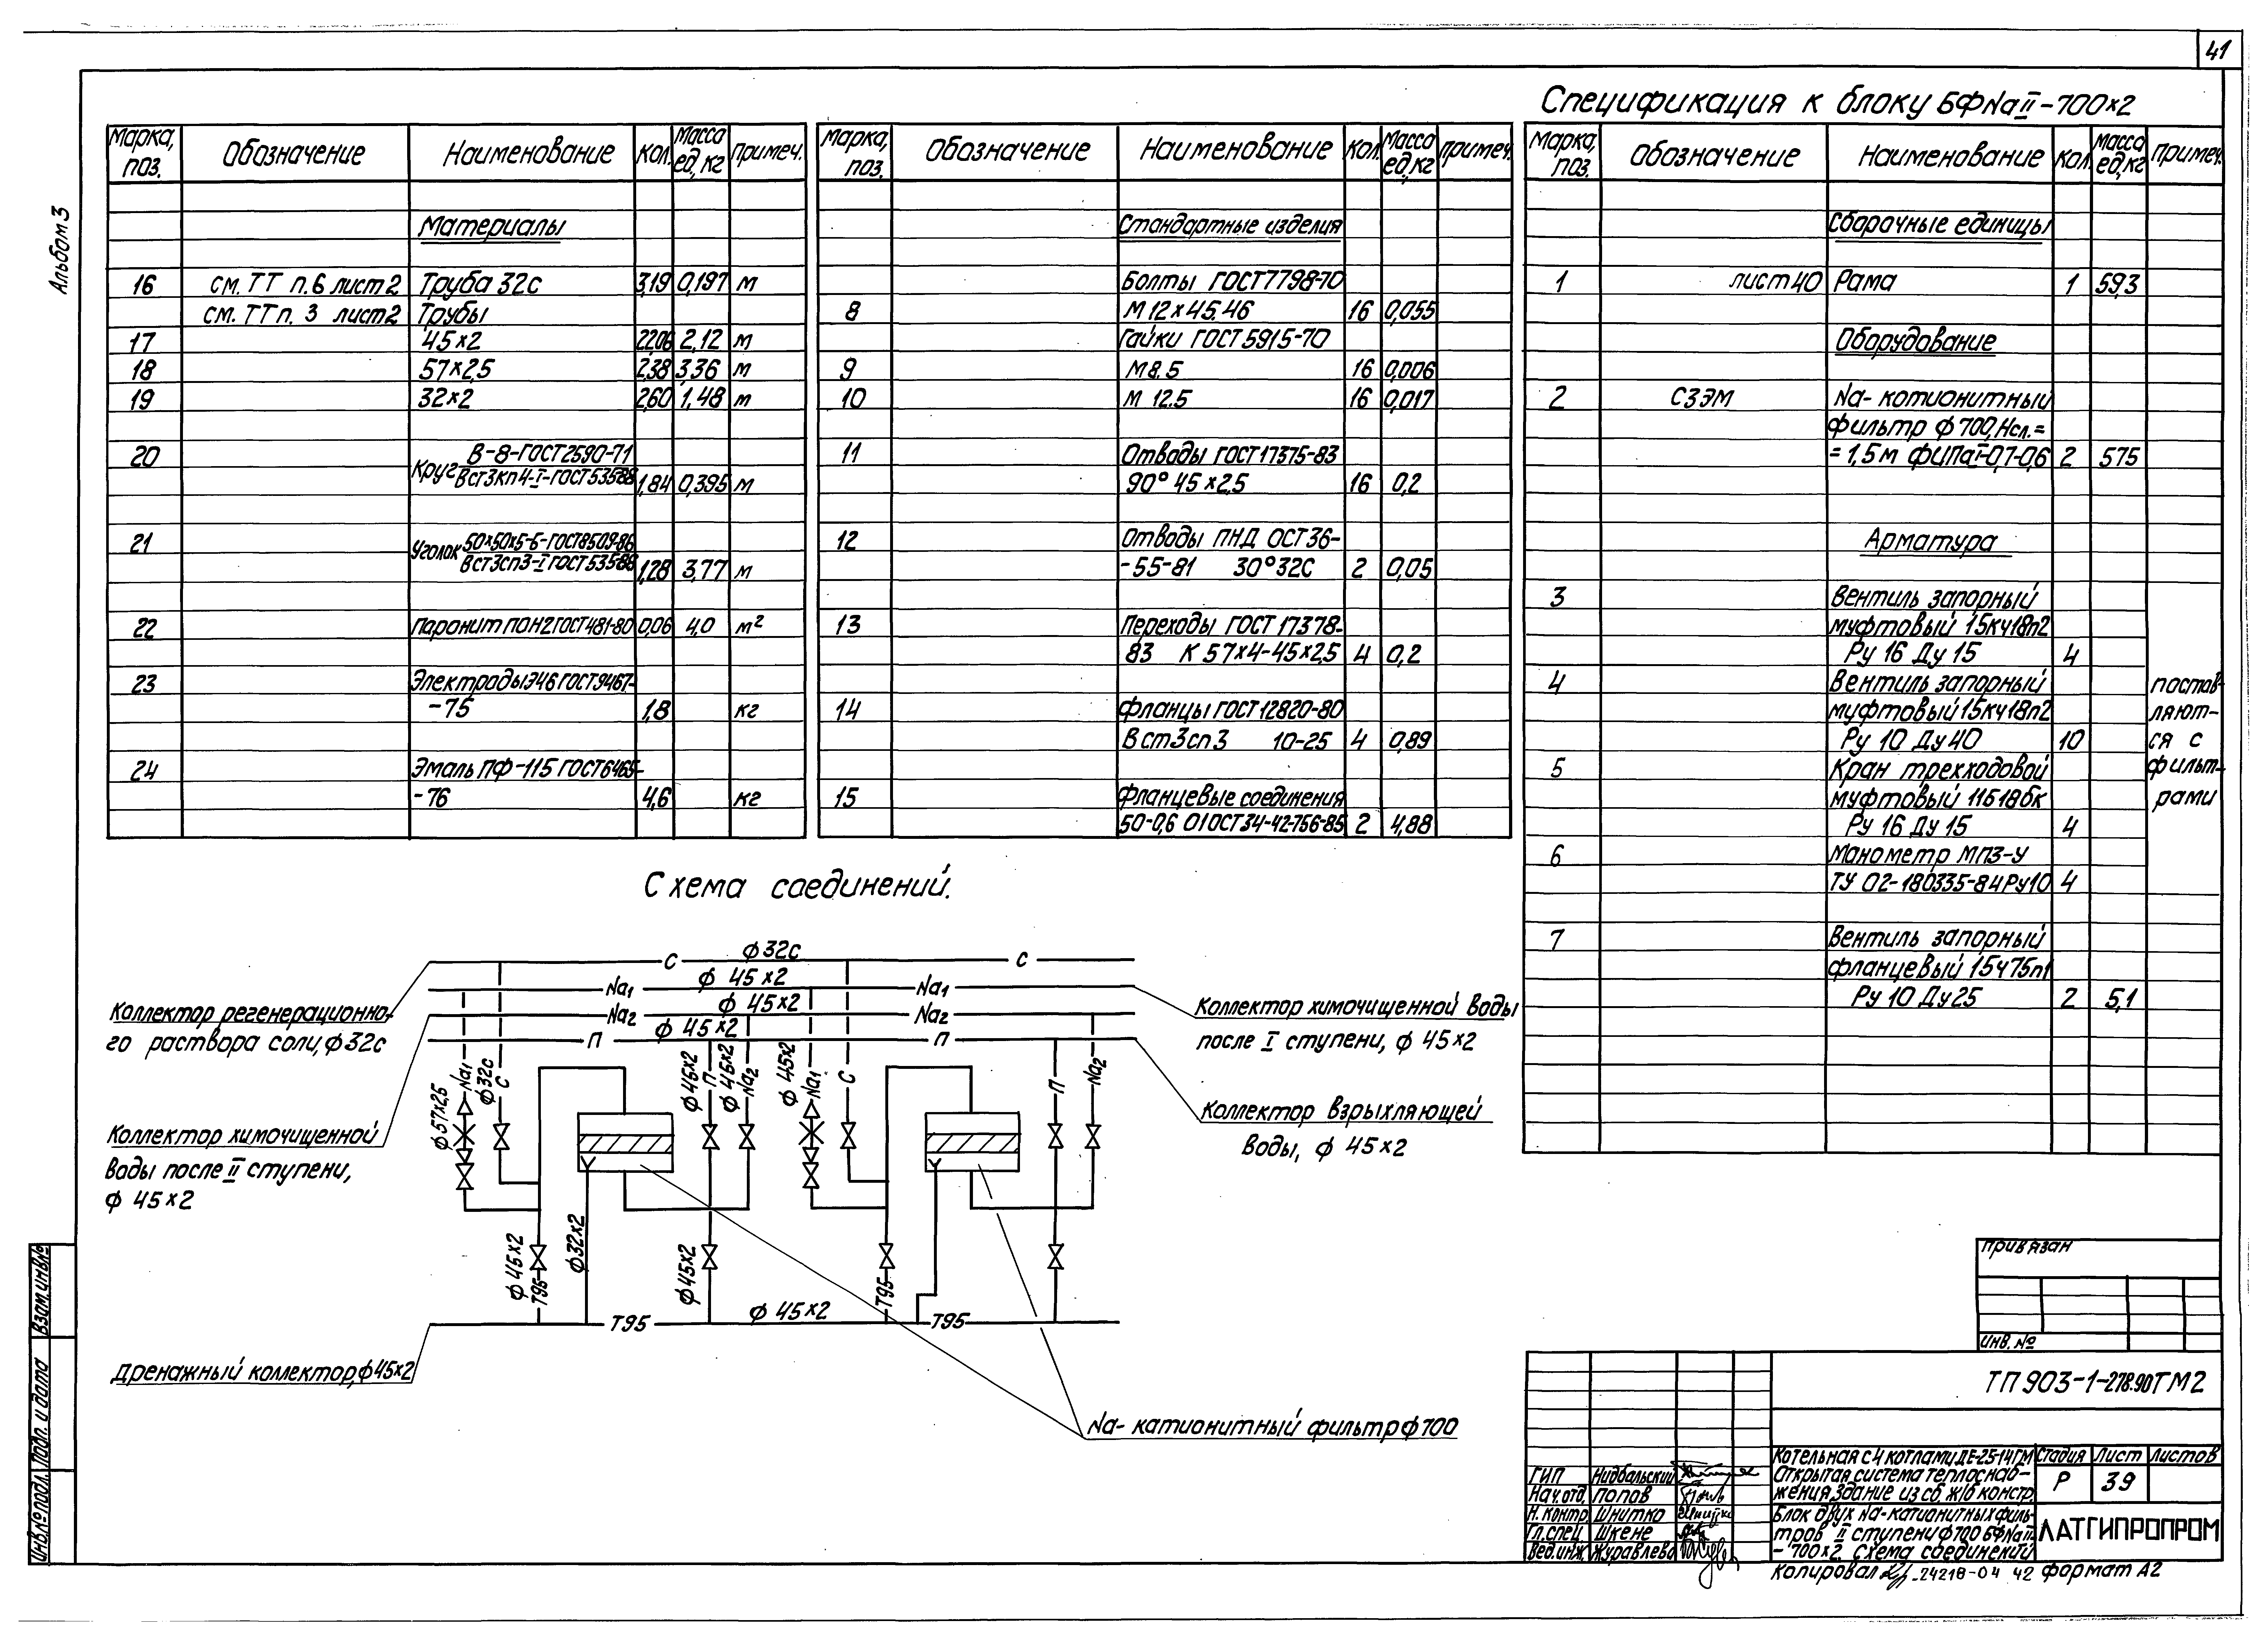 41
Альбом 3
Спецификация к блоку БФNaII-700×2
Марка, поз. Обозначение Наименование Кол. Масса ед, кг Примеч.
Материалы
16 см. ТТ п. 6 лист 2 Труба 32с 3,19 0,197 м
см. ТТ п. 3 лист 2 Трубы
17 45×2 22,06 2,12 м
18 57×2,5 2,38 3,36 м
19 32×2 2,60 1,48 м
20 Круг В-8-ГОСТ 2590-71
Вст3кп4-I-ГОСТ 535-88 1,84 0,395 м
21 Уголок 50×50×5-Б-ГОСТ 8509-86
Вст3сп3-I ГОСТ 535-88 1,28 3,77 м
22 Паронит ПОН2 ГОСТ 481-80 0,06 4,0 м²
23 Электроды Э46 ГОСТ 9467-
-75 1,8 кг
24 Эмаль ПФ-115 ГОСТ 6465-
-76 4,6 кг
Марка, поз. Обозначение Наименование Кол. Масса ед, кг Примеч.
Стандартные изделия
Болты ГОСТ 7798-70
8 М 12×45.46 16 0,055
Гайки ГОСТ 5915-70
9 М8.5 16 0,006
10 М 12.5 16 0,017
11 Отводы ГОСТ 17375-83
90° 45×2,5 16 0,2
12 Отводы ПНД ОСТ 36-
-55-81 30° 32С 2 0,05
13 Переходы ГОСТ 17378-
83 К 57×4-45×2,5 4 0,2
14 Фланцы ГОСТ 12820-80
Вст3сп3 10-25 4 0,89
15 Фланцевые соединения
50-0,6 01 ОСТ 34-42-756-85 2 4,88
Марка, поз. Обозначение Наименование Кол. Масса ед, кг Примеч.
Сборочные единицы
1 лист 40 Рама 1 59,3
Оборудование
2 СЗЭМ Na-котионитный
фильтр ф 700, Нсл.=
=1,5м ФИПаI-0,7-0,6 2 575
Арматура
3 Вентиль запорный
муфтовый 15кч18п2
Ру 16 Ду 15 4
4 Вентиль запорный
муфтовый 15кч18п2
Ру 10 Ду 40 10
5 Кран трехходовой
муфтовый 11Б18бк
Ру 16 Ду 15 4
6 Манометр МП3-У
ТУ 02-180335-84 Ру10 4
постав-
ляют-
ся с
фильт-
рами
7 Вентиль запорный
фланцевый 15ч75п1
Ру 10 Ду 25 2 5,1
Схема соединений.
С ф32с С
Na1 ф 45×2 Na1
Na2 ф 45×2 Na2
П ф 45×2 П
Коллектор регенерационно-
го раствора соли, ф32с
Коллектор химочищенной
воды после II ступени,
ф 45×2
Дренажный коллектор, ф45×2
Коллектор химочищенной воды
после I ступени, ф 45×2
Коллектор взрыхляющей
воды, ф 45×2
ф57×2,5
Na1
ф32с
С
ф 45×2
П
ф 45×2
Na2
ф 45×2
Na1
С
П
Na2
ф 45×2
Т95
ф32×2
ф45×2
Т95
Т95 ф 45×2 Т95
Na-катионитный фильтр ф700
Привязан
Инв. №
ТП 903-1-278.90 ТМ2
Котельная с 4 котлами ДЕ-25-14ГМ
Открытая система теплоснаб-
жения. Здание из сб. ж/б констр.
Стадия Лист Листов
Р 39
Блок двух Na-катионитных филь-
тров II ступени ф700 БФNaII-
-700×2. Схема соединений
ЛАТГИПРОПРОМ
ГИП Нидбальский
Нач. отд. Попов
Н. контр. Шнитко
Гл. спец. Шкене
Вед. инж. Журавлева
Копировал 24218-04 42 Формат А2
Взам. инв. №
Подп. и дата
Инв. № подл.